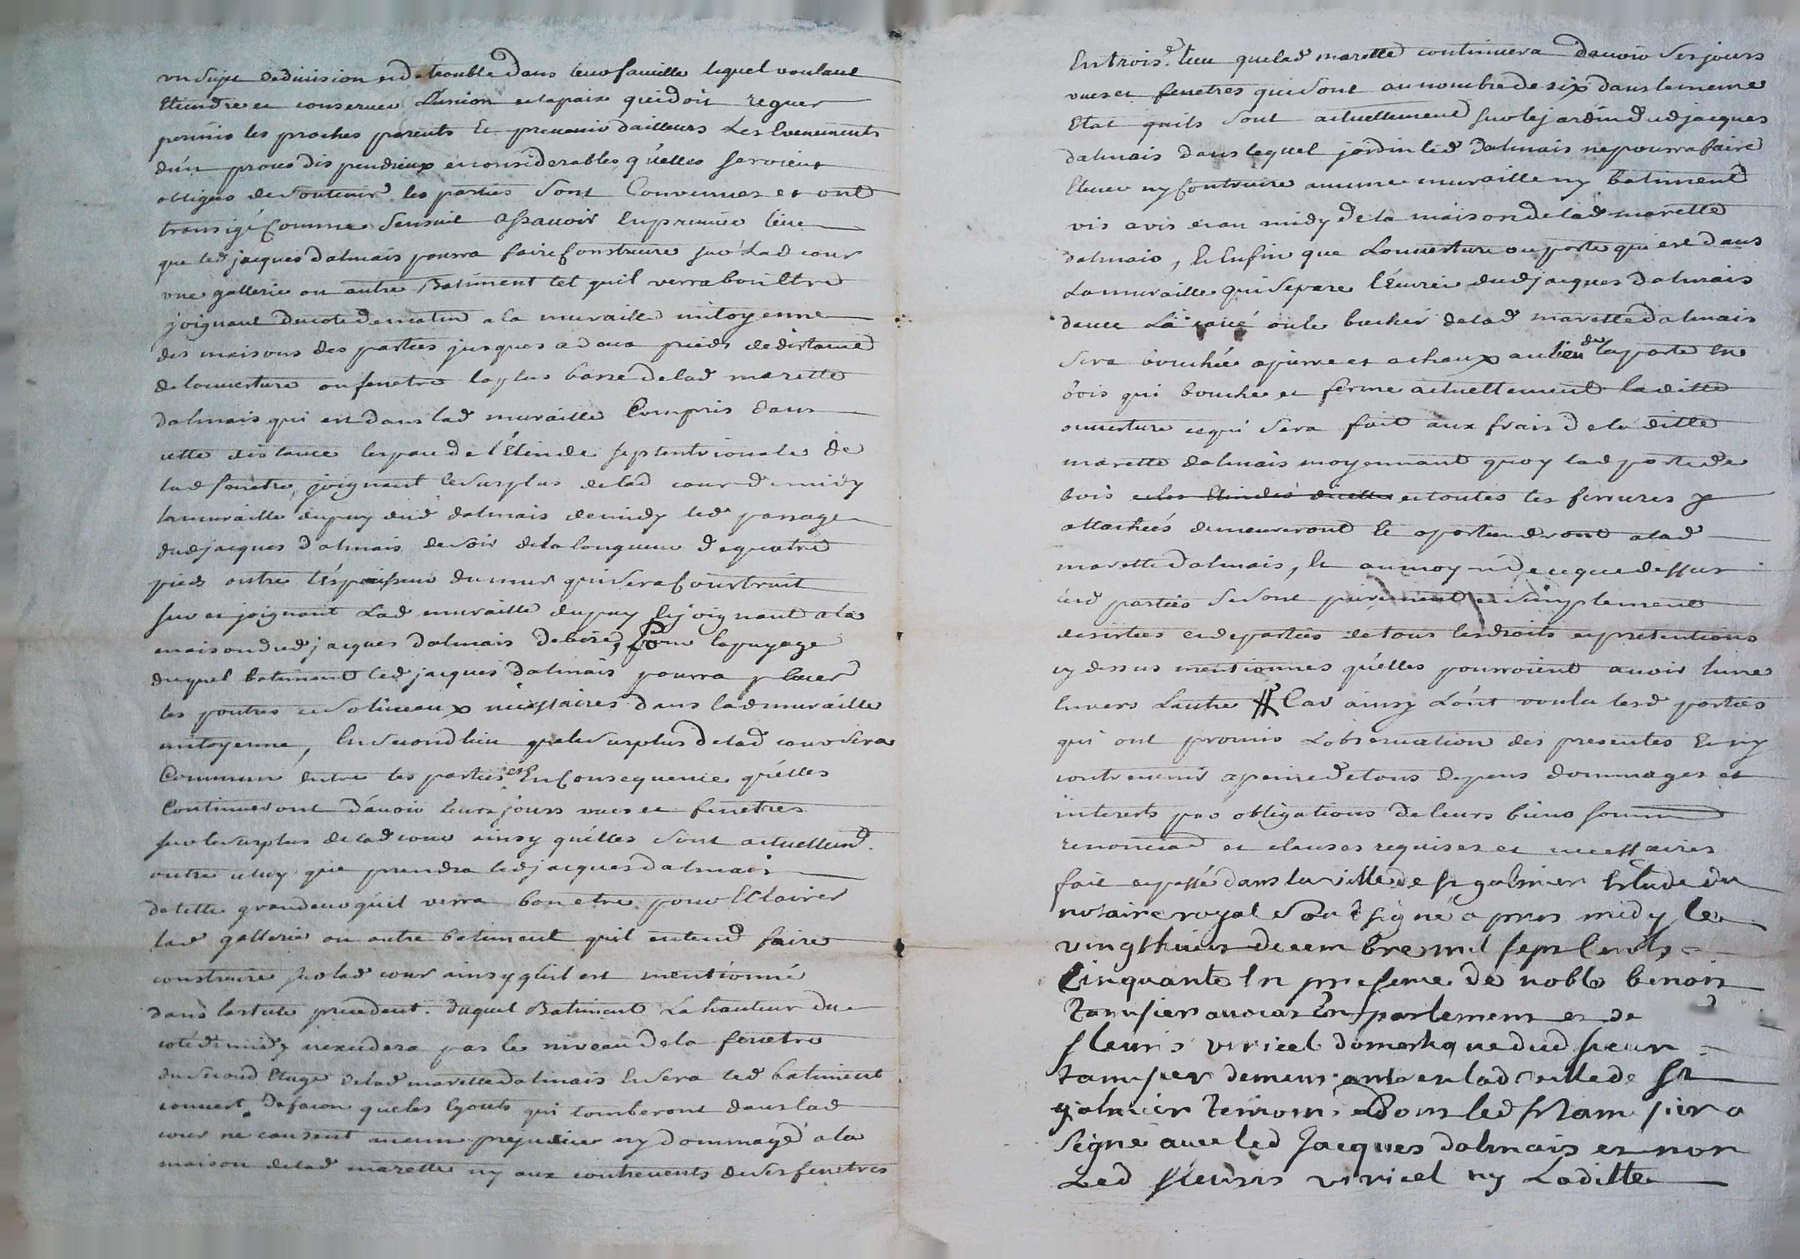 un sujet de division et de trouble dans leur famille lequel voulant
Eteindre et conserver L'union et la paix qui doit regner
permis les proches parents Et prevenir dailleurs Les Evenements
d'un proces dispendieux et considerables qu'elles seroient
obligés de soutenir les parties sont Convenues et ont
transigé Comme sensuit assavoir En premier lieu
que led jacques dalmais pourra faire Construire sur Lad cour
une gallerie ou autre Batiment tel quil verra bon Etre
joignant du coté de matin a la muraille mitoyenne
des maisons des parties jusques a deux pieds de distance
de louverture ou fenetre la plus basse de lad marette
dalmais qui est dans lad muraille Compris dans
cette distance lespace de l'Etendue septentrionale de
lad fenetre, joignant le surplus de lad cour de midy
la muraille du puy dud dalmais de midy led passage
dud jacques dalmais de soir de la longueur de quatre
pieds outre l'épaisseur du mur qui sera Construit
sur et joignant Lad muraille du puy Et joignant a la
maison dud jacques dalmais de bize, Pour lapuyage
duquel batiment led jacques dalmais pourra placer
les poutres et soliveaux necessaires dans lad muraille
mitoyenne, En second lieu que le surplus de lad cour sera
Commun Entre les parties et En Consequence qu'elles
Continueront d'avoir leurs jours vues et fenetres
sur le surplus de lad cour ainsy qu'elles sont actuellemd.
outre celuy que prendra led jacques dalmais
de telle grandeur qu'il verra bon etre pour Eclairer
lad gallerie ou autre batiment quil entend faire
construire sur lad cour ainsy qu'il est mentionné
dans larticle precedent. duquel Batiment La hauteur du
coté de midy nexcedera pas le niveau de la fenetre
du second Etage de lad marette dalmais Et sera led batiment
couvert de facon que les Egouts qui tomberont dans lad
cour ne causent aucun prejudice ny dommage a la
maison de lad marette ny aux contrevents de ses fenetres
En trois.e lieu que lad marette continuera davoir ses jours
vues et fenetres qui sont au nombre de six dans le meme
Etat quils sont actuellement sur le jardin dud jacques
dalmais dans lequel jardin led dalmais ne pourra faire
Elever ny Construire aucune muraille ny batiment
vis avis et au midy de la maison de lad marette
dalmais, Et Enfin que Louverture ou porte qui est dans
La muraille qui separe l'Ecurie dud jacques dalmais
davec La cave ou le bucher de lad marette dalmais
sera bouchée a pierre et a chaux au lieu de la porte En
bois qui bouche et ferme actuellement laditte
ouverture ce qui sera fait aux frais de la ditte
marette dalmais moyennant quoy lad porte de
bois et toutes les ferrures y
attachées demeureront Et apartiendront a lad
marette dalmais, Et au moyen de ce que dessus
lesd parties se sont purement et simplement
desistées et departies de tous les droits et pretentions
cy dessus mentionnés qu'elles pourroient avoir lune
Envers Lautre # Car ainsy L'ont voulu lesd parties
qui ont promis Lobservation des presentes Et ny
contrevenir a peine de tous depens dommages et
interests par obligations de leurs biens soum
renonciad et clauses requises et necessaires
fait et passé dans la ville de st galmier Etude du
notaire royal Sousigné apres midy le
vingthuit decembre mil sept Cents
Cinquante En presence de noble benoit
Tamisier avocat En parlement et de
fleuris viricel domestique dud sieur
tamisier demeurants en lad ville de St
galmier temoins dont led sr Tamisier a
signé avec led Jacques dalmais et non
Led fleuris viricel ny Laditte